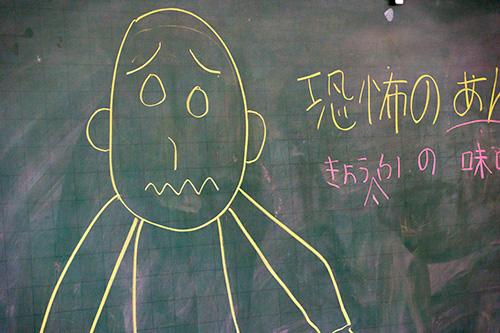 恐怖のあん
きょうらいの味